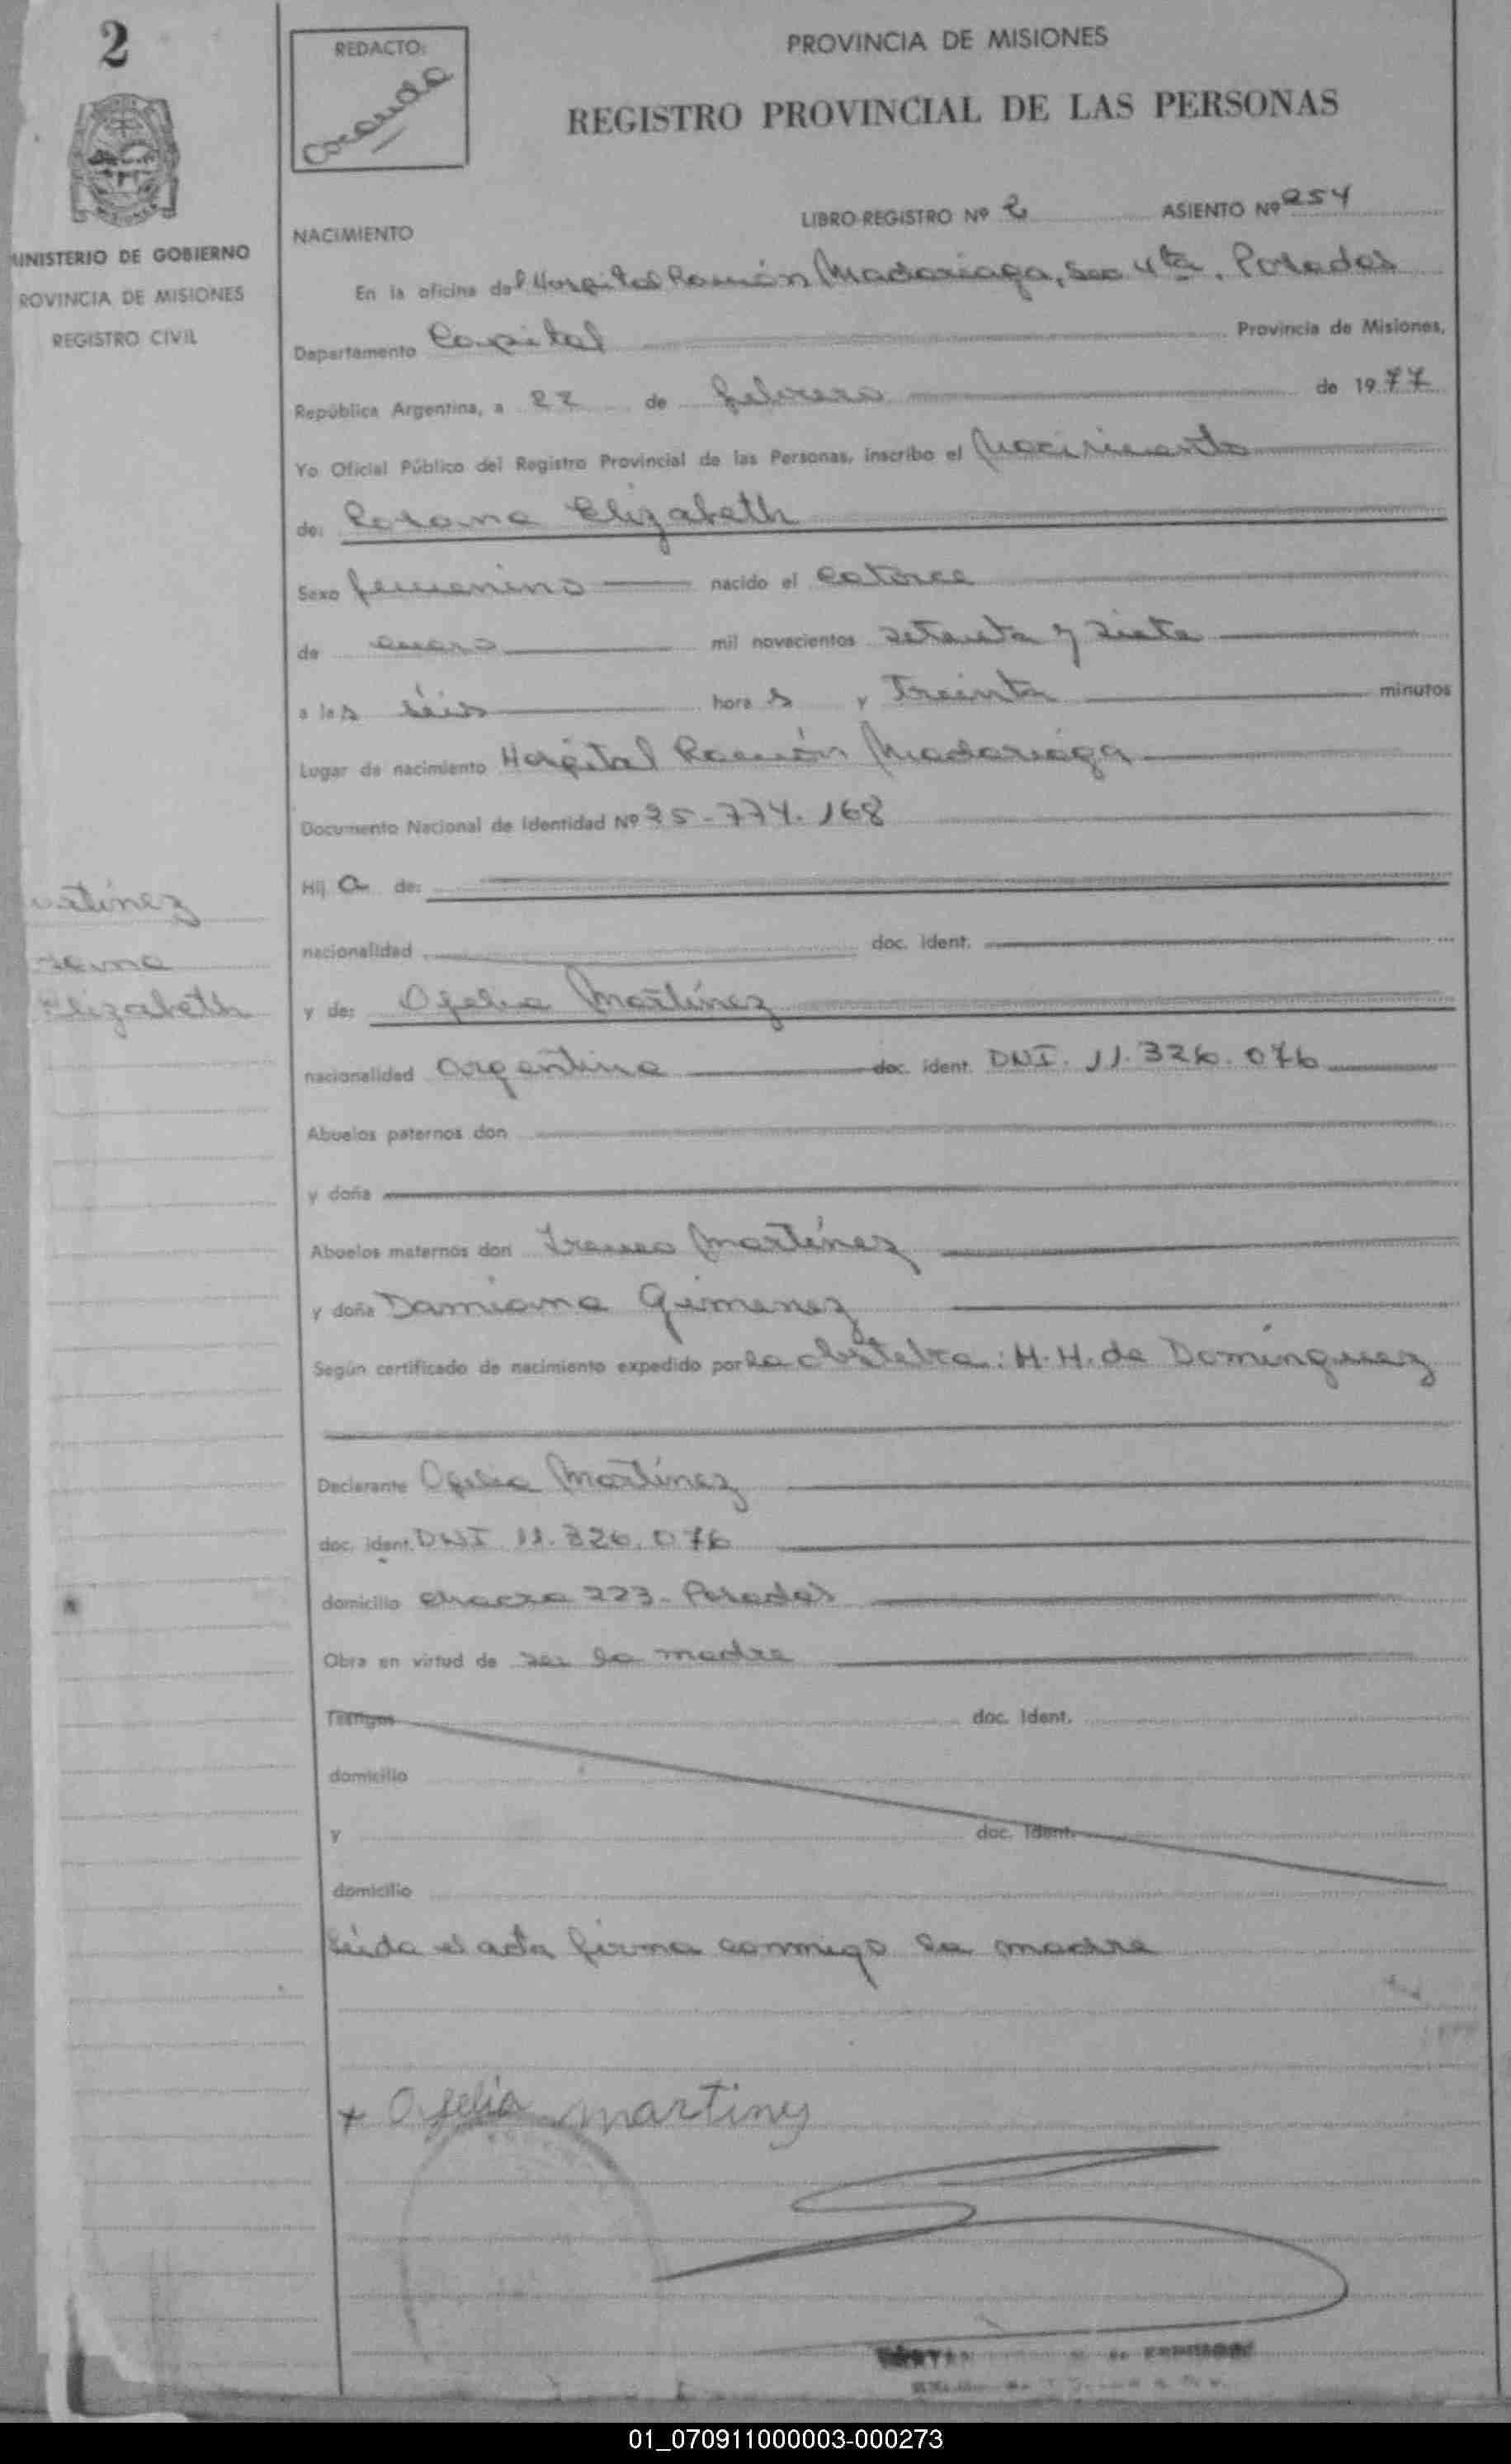 2
MINISTERIO DE GOBIERNO
ROVINCIA DE MISIONES
REGISTRO CIVIL
REDACTO:
PROVINCIA DE MISIONES
REGISTRO PROVINCIAL DE LAS PERSONAS
LIBRO-REGISTRO Nº 2 ASIENTO Nº 254
NACIMIENTO
En la oficina del Hospital Ramón Madariaga, Sec 4ta, Posadas
Departamento Capital Provincia de Misiones,
República Argentina, a 22 de febrero de 1977
Yo Oficial Público del Registro Provincial de las Personas, inscribo el Nacimiento
de: Rosana Elizabeth
Sexo femenino nacido el catorce
de enero mil novecientos setenta y siete
a las séis horas y Treinta minutos
Lugar de nacimiento Hospital Ramón Madariaga
Documento Nacional de Identidad Nº 25-774.168
Hij a de:
nacionalidad doc. ident.
y de: Ofelia Martínez
nacionalidad argentina doc. ident. DNI. 11.326.076
Abuelos paternos don
y doña
Abuelos maternos don Ireneo Martínez
y doña Damiana Gimenez
Según certificado de nacimiento expedido por la obstetra: H.H. de Domínguez
Declarante Ofelia Martínez
doc. ident. DNI 11.326.076
domicilio chacra 223- Posadas
Obra en virtud de ser la madre
Testigos doc. Ident.
domicilio
y doc. Ident.
domicilio
leida el acta firma conmigo la madre
+ Ofelia martinez
rtínez
sana
Elizabeth
01_070911000003-000273